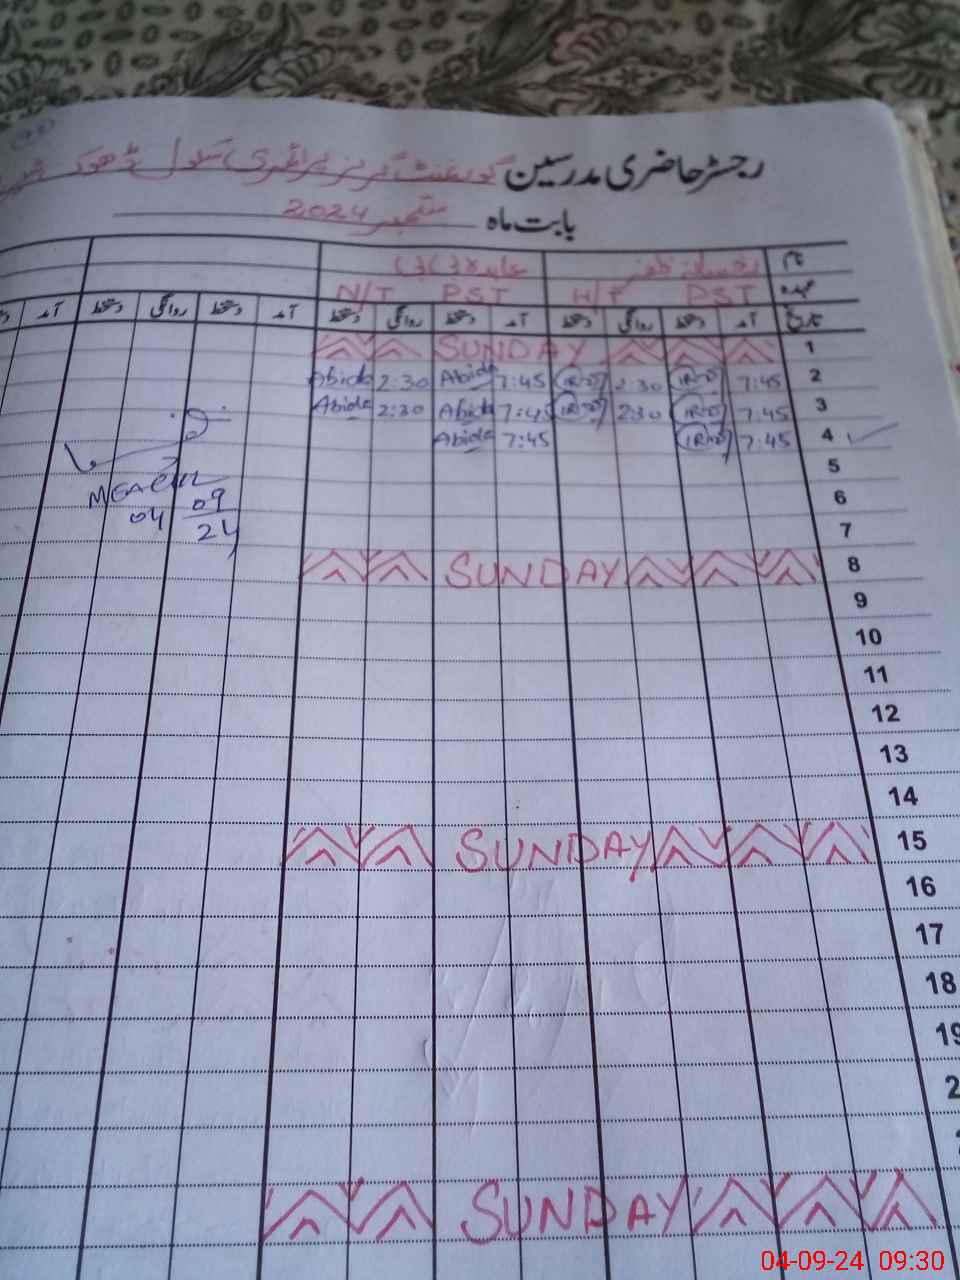 رجسٹر حاضری مدرسین گورنمنٹ گرلز پرائمری سکول ڈھوک
بابت ماہ ستمبر 2024
نام رخسانہ ظفر عابدہ
عہدہ PST H/T PST N/T
تاریخ آمد دستخط روانگی دستخط آمد دستخط روانگی دستخط آمد دستخط روانگی دستخط آمد
1 SUNDAY
2 7:45 2:30 7:45 Abida 2:30 Abida
3 7:45 2:30 7:45 Abida 2:30 Abida
4 7:45 7:45 Abida
5
6
7
04 09
24
8 SUNDAY
9
10
11
12
13
14
15 SUNDAY
16
17
18
19
2
SUNDAY
04-09-24 09:30